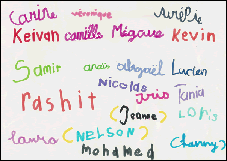 Carine véronique Aurélie
Keivan camille Mégane Kevin
Samir anaïs abigaël Lucien
Nicolas
rashit iris Tania
(Jeanne) Loris
laura (NELSON) Charny
mohamed